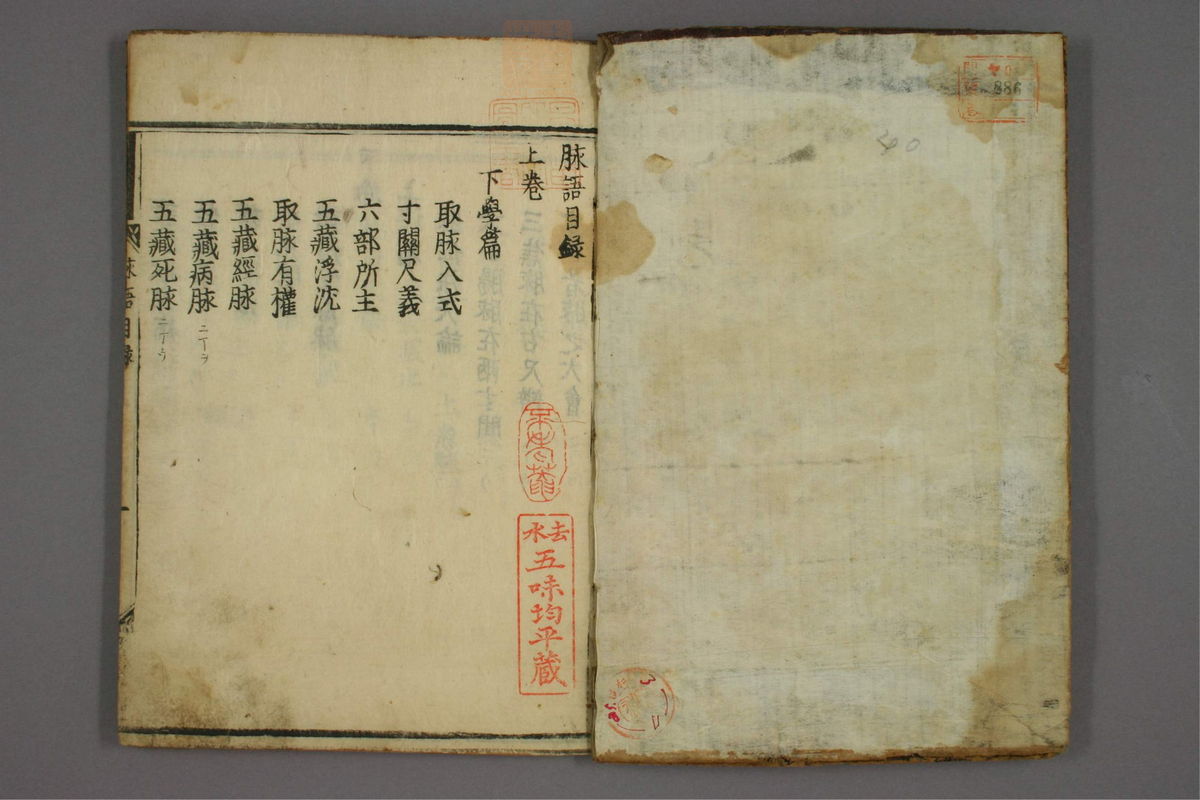 脉語目録
上卷
下學篇
取脉入式
寸關尺義
六部所主
五藏浮沈
取脉有權
五藏經脉
五藏病脉 二丁ヲ
五藏死脉 二丁ウ
脉語目録
去水
五味均平蔵
886